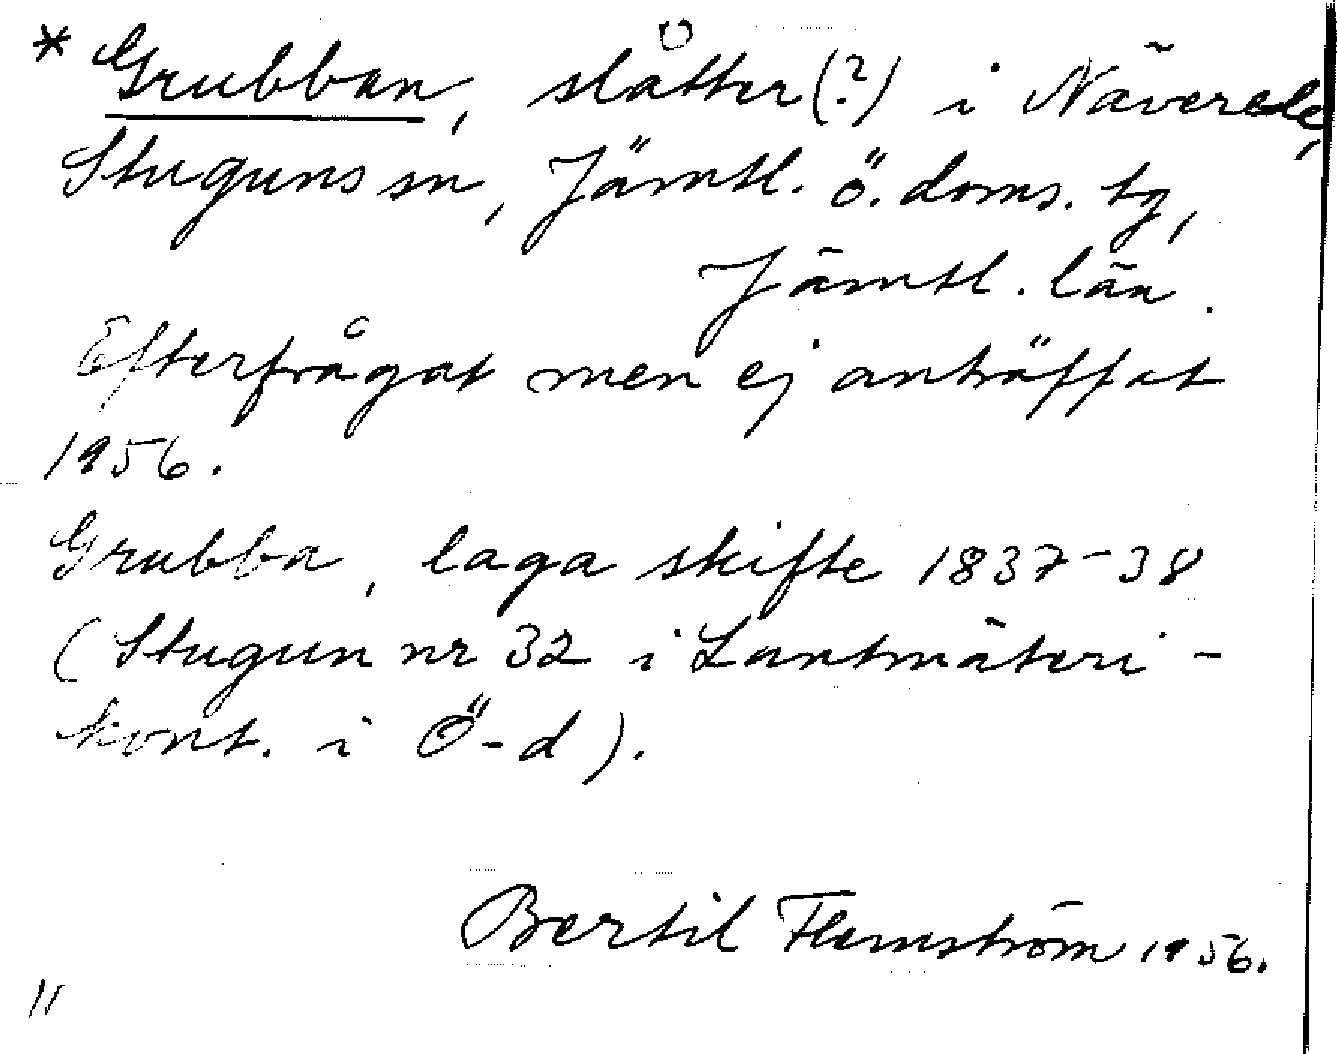 * Grubban, slåtter (?) i Näverede,
Stuguns sn, Jämtl. ö. doms. tg,
Jämtl. län.
Efterfrågat men ej anträffat
1956.
Grubba, laga skifte 1837-38
(Stugun nr 32 i Lantmäteri-
kont. i Ö-d).
Bertil Flemström 1956.